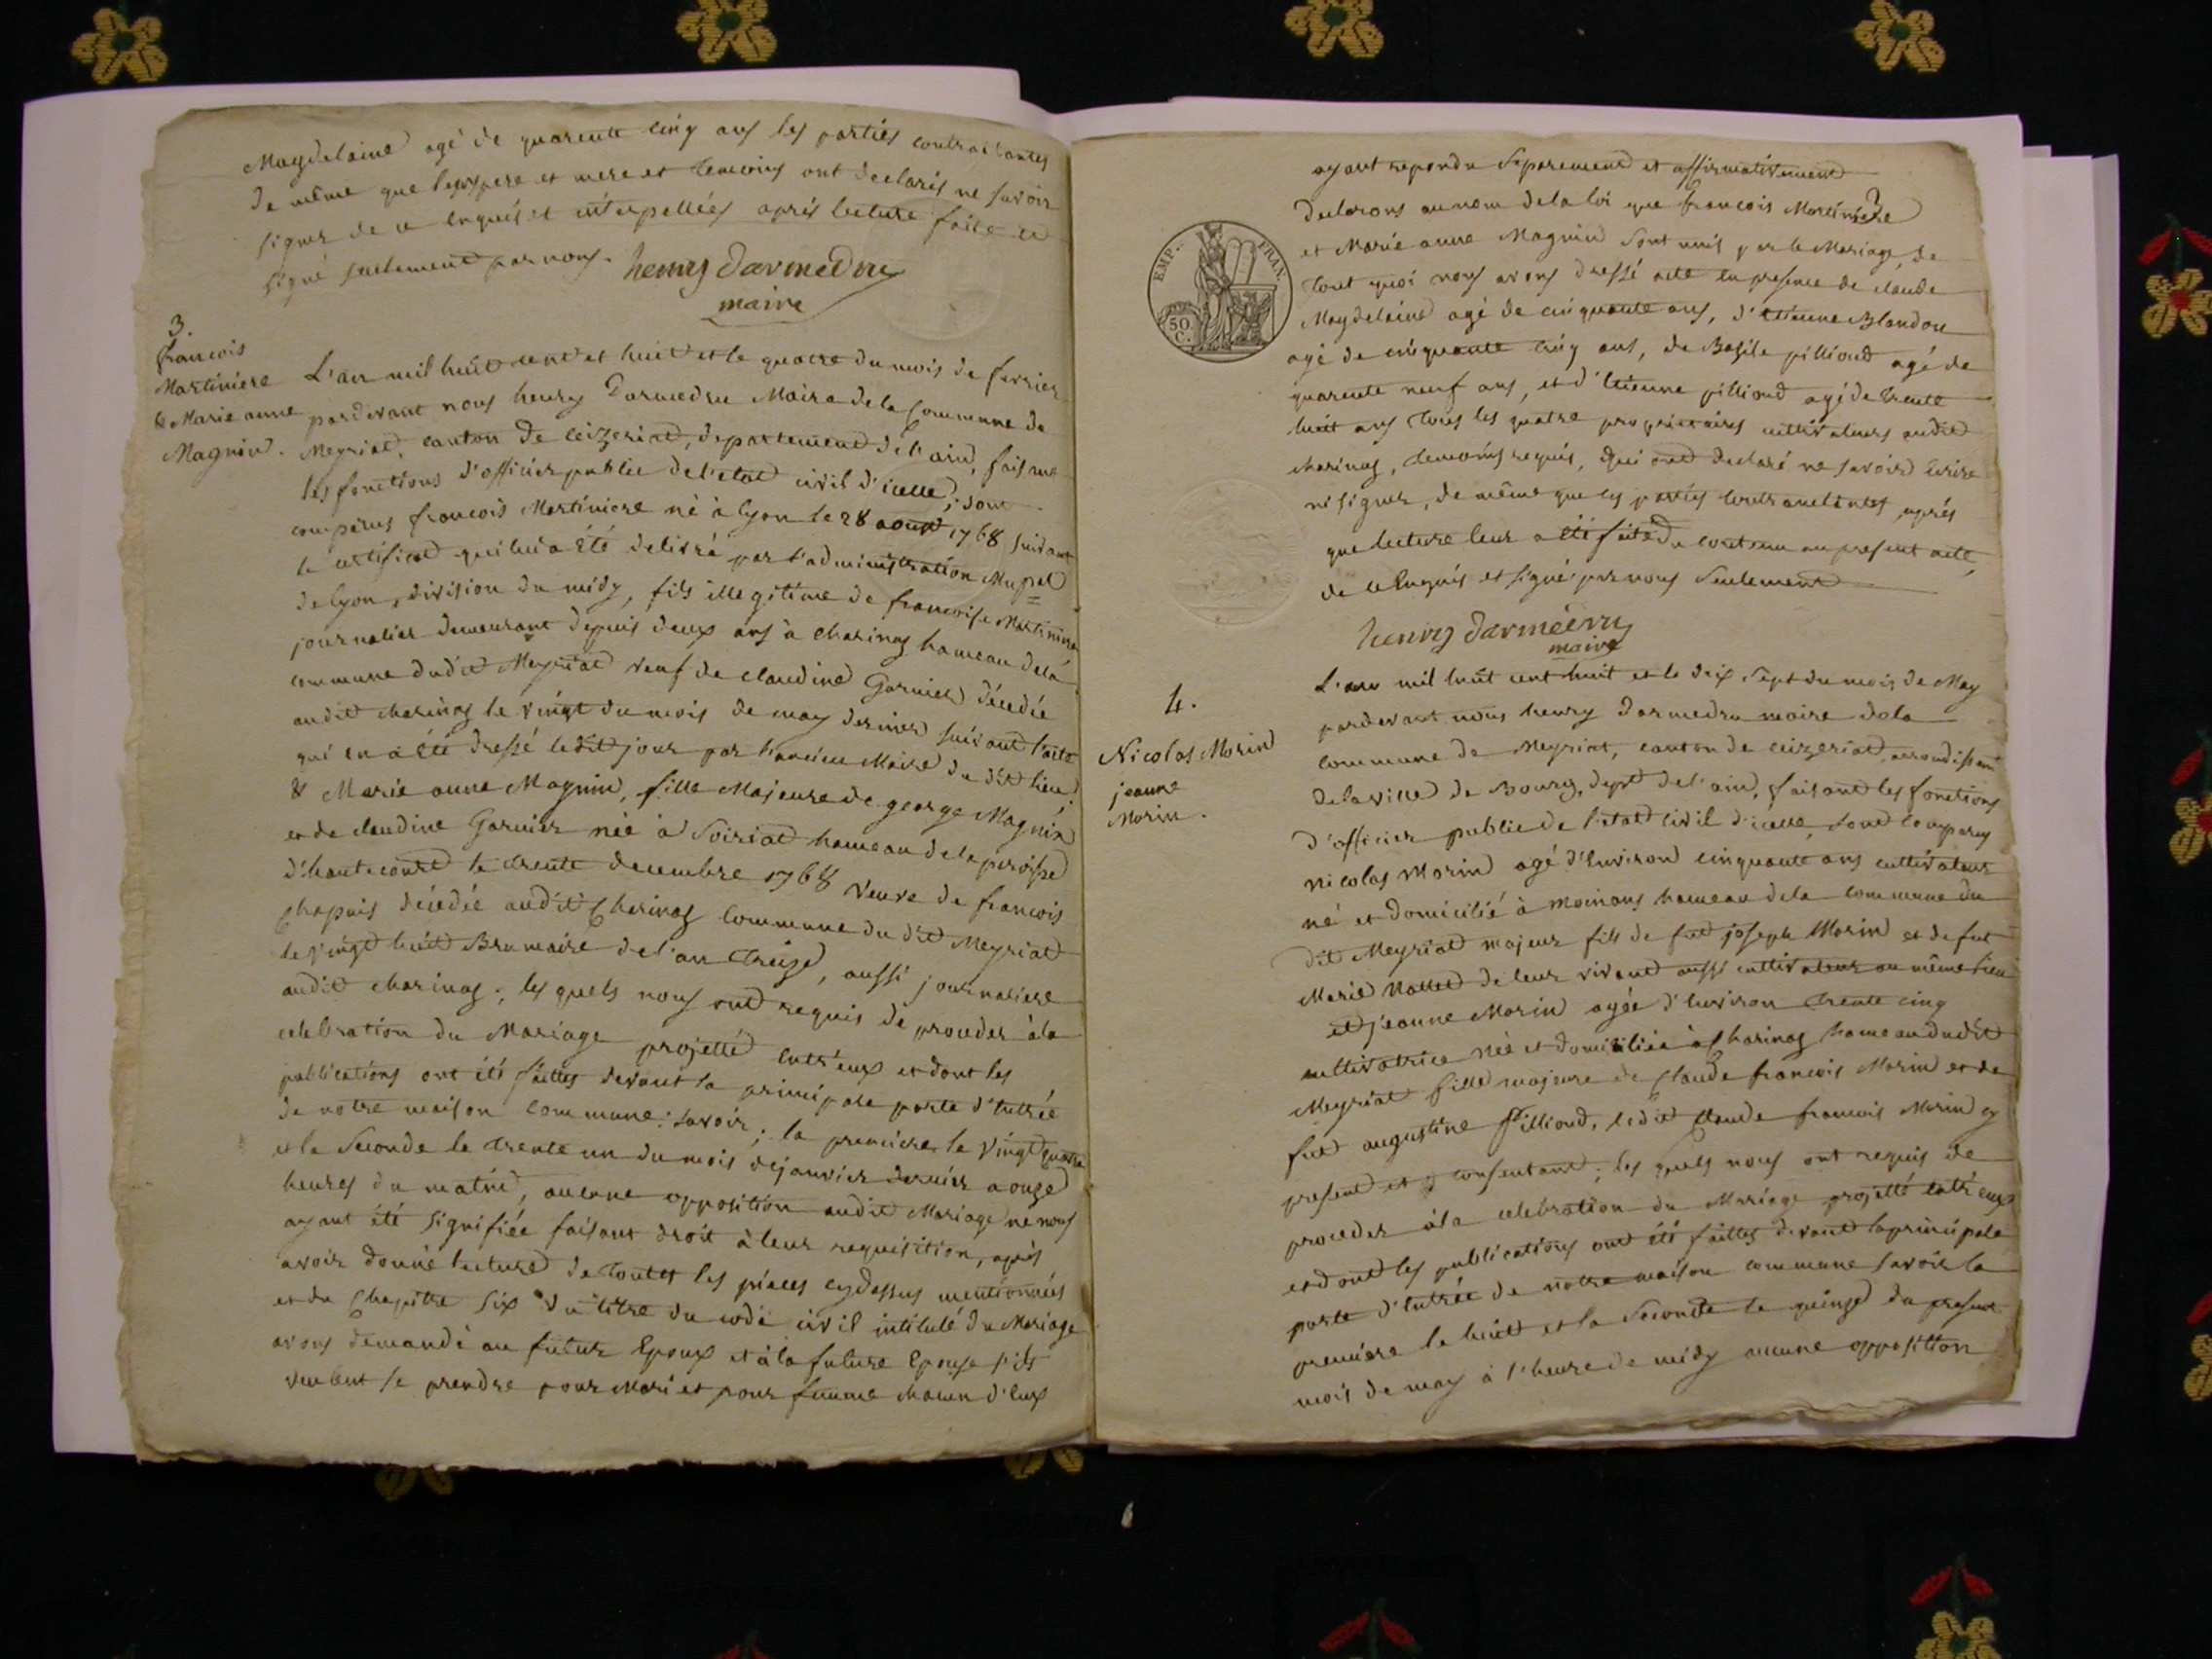 Magdelaine agé de quarente cinq ans les parties contractantes
de même que les pere et mere et temoins ont declarés ne savoir
signer de ce enquis et interpellées aprés lecture faite et
signé seulement par nous.
henry darmedru
maire
3.
francois
Martiniere
& Marie anne
Magnin.
L'an mil huit cent et huit et le quatre du mois de fevrier
pardevant nous henry Darmedru Maire de la Commune de
Meyriat, canton de Ceizeriat, departement de l'ain, faisant
les fonctions d'officier public de l'etat civil d'icelle; sont
comparus francois Martiniere né à lyon le 28 aoust 1768 suivant
le certificat qui lui a été delivré par l'administration Mupal
de lyon, division du midy, fils illegitime de francoise Martiniere
journalier demeurant depuis deux ans à Charinas hameau dela
commune dudit Meyriat veuf de claudine Garnier décedée
audit charinas le vingt du mois de may dernier suivant l'acte
qui en a été dressé ledit jour par l'ancien Maire du dit lieu;
& Marie anne Magnin, fille Majeure de george Magnin
et de claudine Garnier née à Soiriat hameau de la paroisse
d'hautecourt le trente decembre 1768 veuve de francois
Chapuis décedée audit Charinas Commune du dit Meyriat
le vingt huit Brumaire de l'an treize, aussi journaliere
audit charinas; les quels nous ont requis de proceder à la
celebration du Mariage projetté entr'eux et dont les
publications ont été faittes devant la principale porte d'entrée
de notre maison commune: savoir; la premiere le vingt quatre
et la Seconde le trente un du mois dejanvier dernier a onze
heures du matin, aucune opposition audit Mariage ne nous
ayant été signifiée faisant droit à leur requisition, après
avoir donné lecture de toutes les piéces cydessus mentionnées
et du Chapitre six du titre du code civil intitulé du Mariage
avons demandé au futur Epoux et à la future Epouse s'ils
veulent se prendre pour Mari et pour femme chacun d'eux
ayant repondu Separement et affirmativement
declarons au nom de la loi que francois Martiniere
et Marie anne Magnin sont unis par le Mariage, de
tout quoi nous avons dressé acte en presence de claude
Magdelaine agé de cinquante ans, d'etienne Blandon
agé de cinquante cinq ans, de Basile pilliond agé de
quarente neuf ans, et d'etienne pilliond agé de trente
huit ans tous les quatre proprietaires cultivateurs audit
charinas, temoins requis, qui ont declaré ne savoir ecrire
ni signer, de même que les parties contractantes aprés
que lecture leur a été faite du contenu au present acte,
de ce Enquis et signé par nous Seulement
EMP. FRAN.
50
C.
henry darmedru
maire
4.
Nicolas Morin
jeanne
Morin.
L'an mil huit cent huit et le dix Sept du mois de May
pardevant nous henry darmedru maire dela
Commune de Meyriat, canton de ceizeriat, arrondissemt
de la ville de Bourg, dept de l'ain, faisant les fonctions
d'officier public de l'etat civil d'icelle, sont comparus
nicolas Morin agé d'Environ cinquante ans cultivateur
né et domicilié à moinans hameau dela commune du
dit Meyriat majeur fils de fut joseph Morin et de fut
Marie de leur vivant aussi cultivateur au même lieu
et jeanne Morin agée d'Environ trente cinq
cultivatrice née et domiciliée à Charinas hameau dudit
Meyriat fille majeure de Claude francois Morin et de
fut augustine Pilliond, ledit Claude francois Morin cy
present et consentant; les quels nous ont requis de
proceder à la celebration du Mariage projetté entr'eux
et dont les publications ont été faittes devant la principale
porte d'entrée de notre maison commune savoir la
premiere le huit et la Seconde le quinze du present
mois de may à l'heure de midy aucune opposition